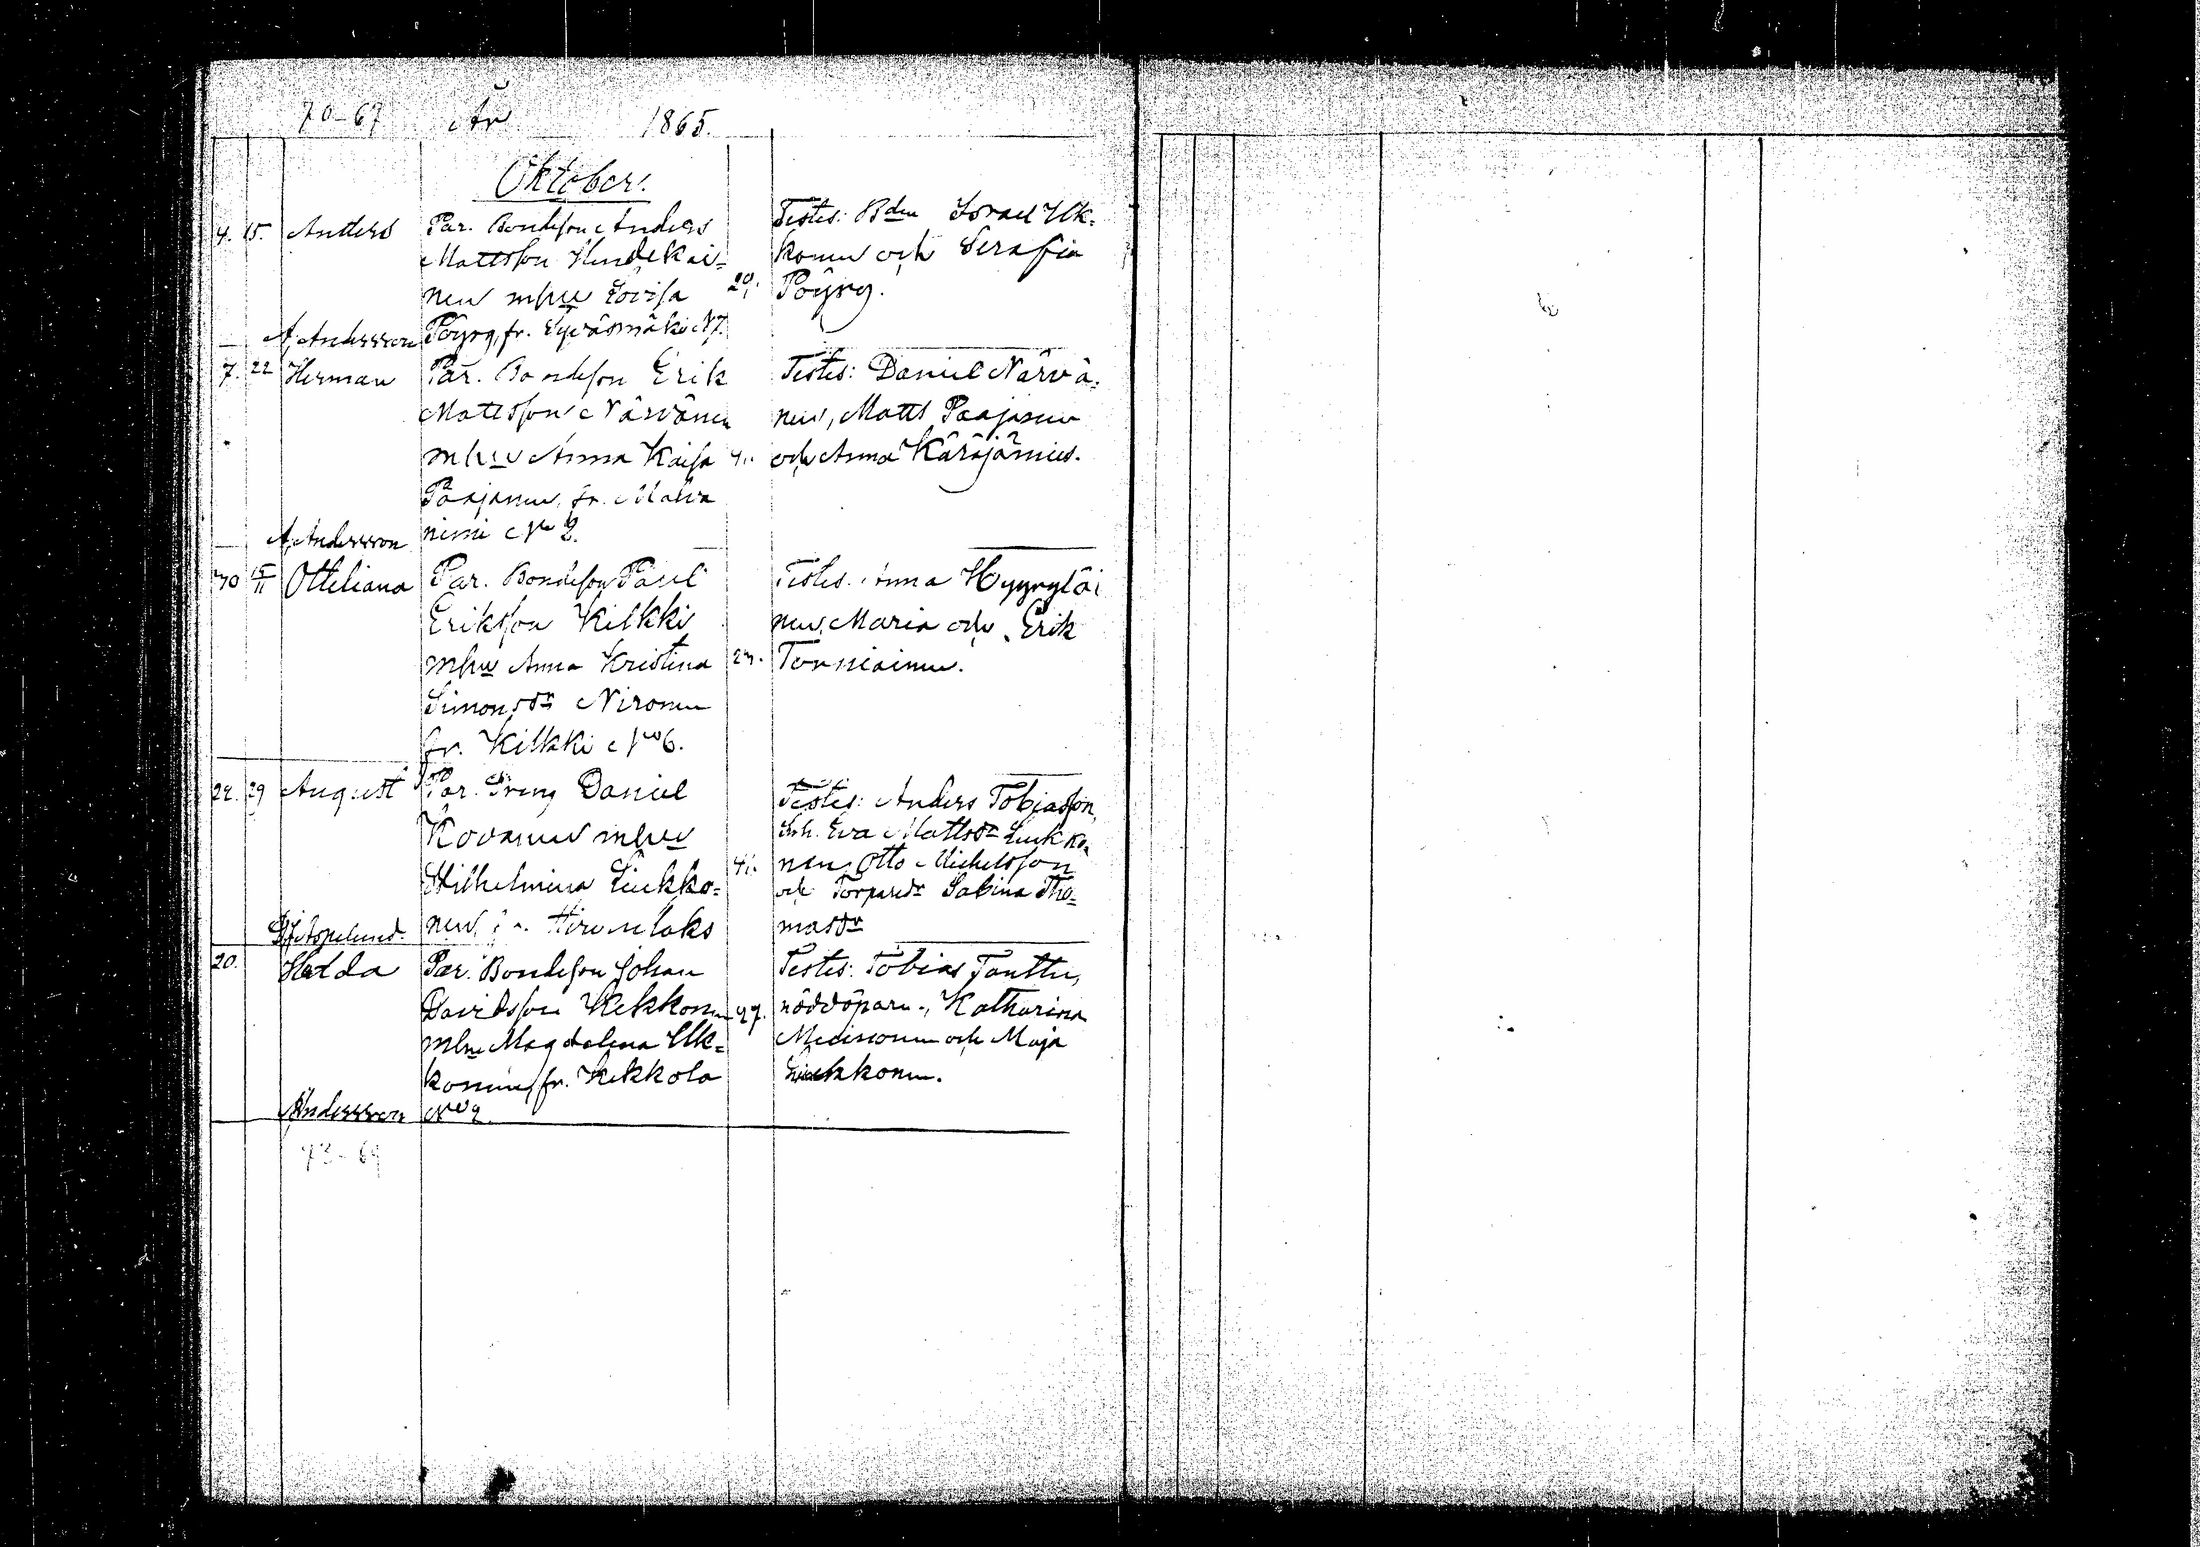 70-67 År 1865.
Oktober.
4. 15. Anders
Par. Bondeson Anders
Mattsson Hindikai=
nen mhu Lovisa 20.
Pöyry, fr. N 7.
A. Andersson
Testes: Bden Israel Uk=
konen och Serafia
Pöyry.
7. 22 Herman
Par. Bondeson Erik
Mattsson Närvänen
mhu Anna Kaisa 41.
Paajanen, fr.
niemi No 2.
A. Andersson
Testes: Daniel Närvä=
nen, Matts Paajanen
och Anna Käräjämies.
30 15/11 Otteliana
Par. Bondeson Paul
Eriksson Kilkki
mhu Anna Kristina 23.
Simonsdr Nironen
fr. Kilkki No 6.
Testes: Anna Hyyryläi
nen, Maria och Erik
Torniainen.
22. 29 August
Par. Dreng Daniel
Kovanen mhu
Wilhelmina Liukko= 41.
nen fr. Hirvenlaks
Testes: Anders Tobiasson,
Inh. Eva Mattsdr Liukko=
nen, Otto Michelsson
och Torparedr Sabina Tho=
masdr
20. Hedda
Par. Bondeson Johan
Davidsson Kekkonen 27.
mhu Magdalena Uk=
konen, fr. Kekkola
No 2.
Andersson
Testes: Tobias Tanttu,
nöddöpare, Katharina
och Maja
Liukkonen.
73-69